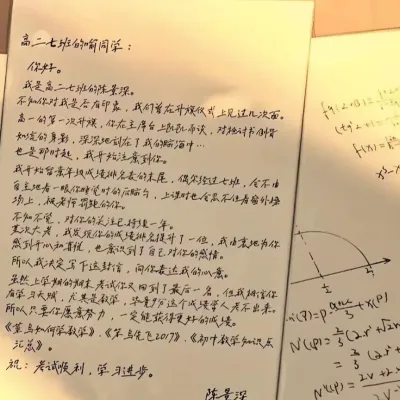 高二七班的喻同学：
你好。
我是高二七班的陈景深。
不知你对我是否有印象，我们曾在升旗仪式上见过几次面。
高一的第一次升旗，你在主席台上侃侃而谈，对检讨书倒背
如流的身影，深深地刻在了我的脑海中…
也是那时起，我开始注意到你。
我开始留意年级成绩排名表的末尾，偶尔经过七班，会不由
自主地看一眼你睡觉时的后脑勺，上课时也会忍不住看窗外操
场上，被老师罚跑的你。
不知不觉，对你的关注已持续一年。
某次大考，我发现你的成绩排名提升了一位，我由衷地为你
感到开心和骄傲，也意识到了自己对你的感情。
所以我决定写下这封信，向你表达我的心意。
虽然上学期的期末考试你又回到了最后一名，但我相信你
有学习天赋，尤其是数学，毕竟9分这个成绩常人考不出来。
所以只要你愿意努力，一定能获得更好的成绩。
《笨鸟如何学数学》，《笨鸟先飞2017》，《初中数学知识点
汇总》。
祝：考试顺利，学习进步。
陈景深